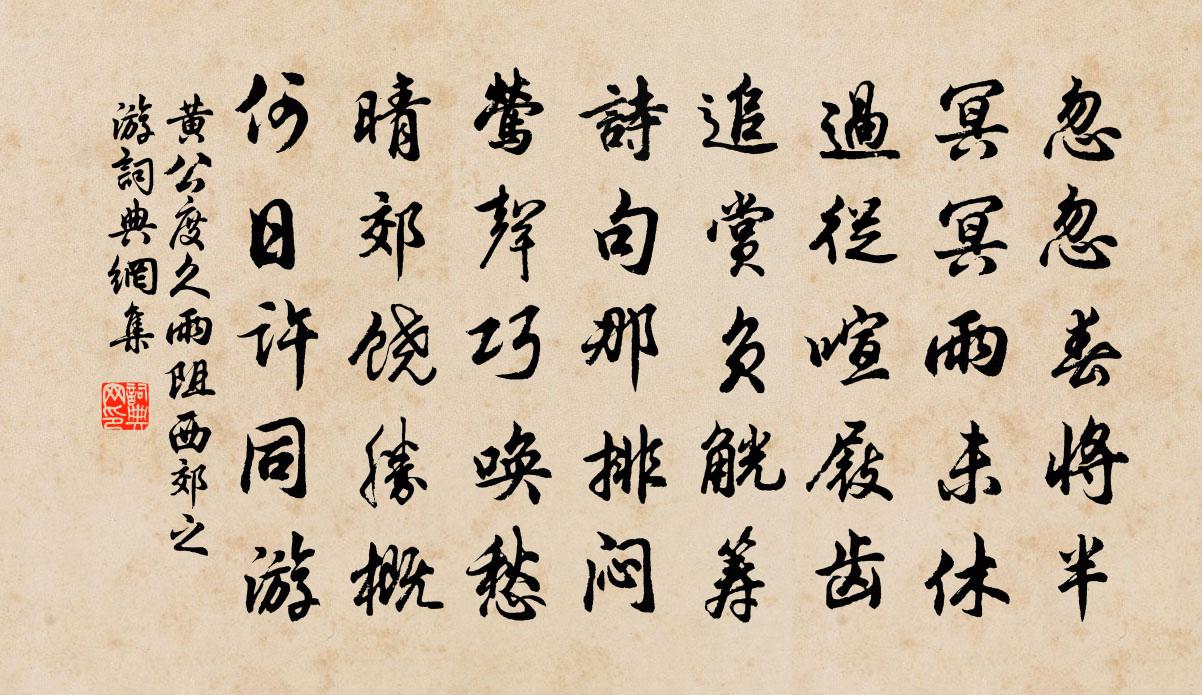 忽忽春將半
冥冥雨未休
過從喧屐齒
追賞負觥筹
詩句那排闷
鶯聲巧喚愁
晴郊饶勝概
何日許同游
黄公度久雨阻西郊之
游詞典網集
詞典网印